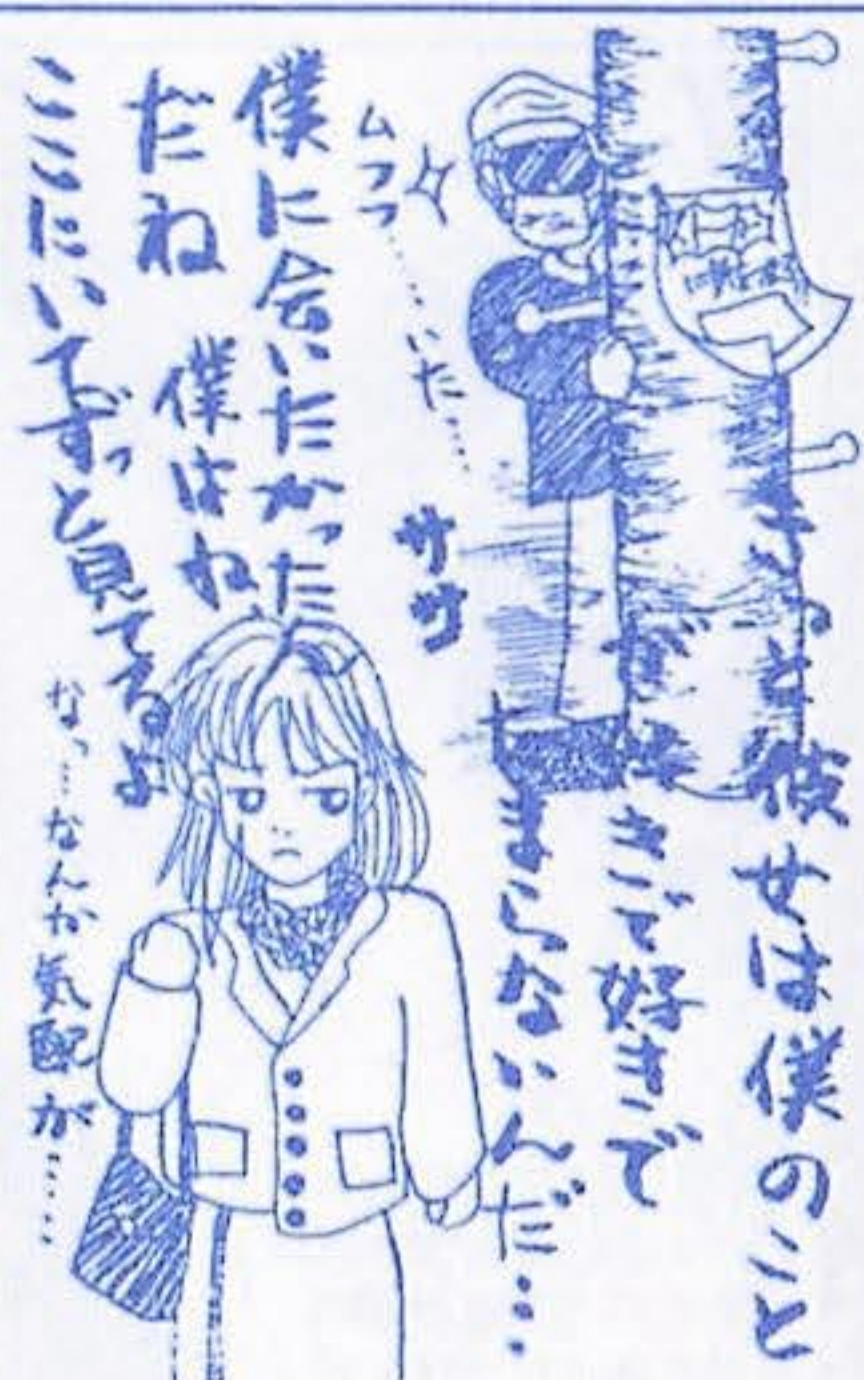 きっと彼女は僕のこと
が好きで好きで
たまらないんだ…
ササ
ムフフ……いた……
僕に会いたかった
だね 僕はね、
ここにいてずっと見てるよ
なっ…なんか気配が……